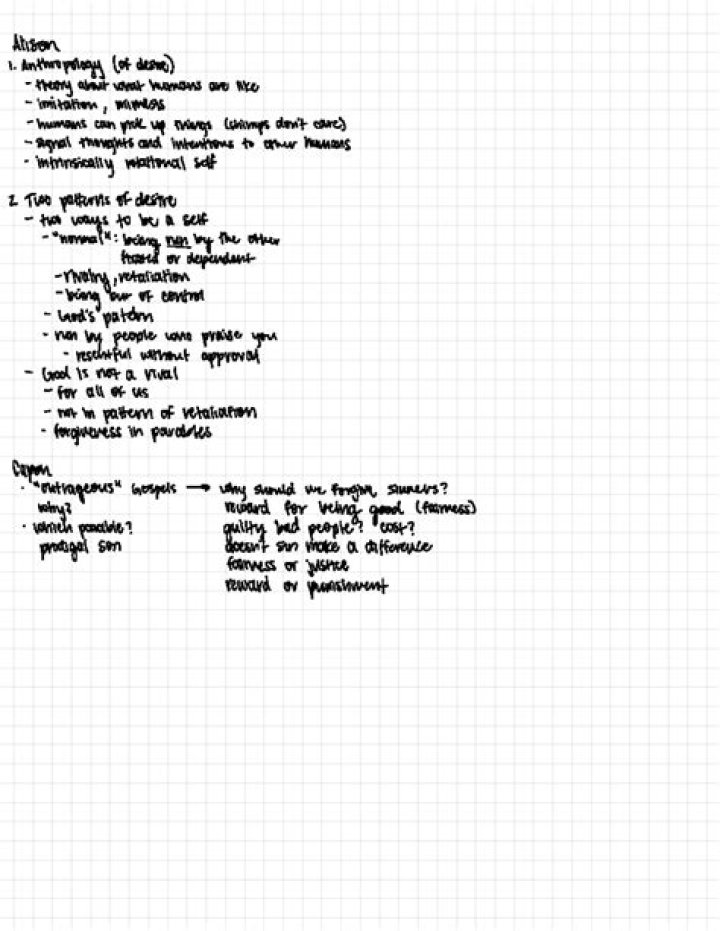 Alison
1. Anthropology (of desire)
- theory about what humans are like
- imitation, mimesis
- humans can pick up things (shrimps don't care)
- signal thoughts and intentions to other humans
- intrinsically relational self
2 Two patterns of desire
- two ways to be a self
- "normal": being run by the other
or dependent
- rivalry, retaliation
- being out of control
- God's pattern
- run by people who praise you
- resentful without approval
- God is not a rival
- for all of us
- not in pattern of retaliation
- forgiveness in parables
Capon
· "outrageous" Gospels → why should we forgive sinners?
why? reward for being good (fairness)
· which parable? guilty bad people? cost?
prodigal son doesn't sin make a difference
fairness or justice
reward or punishment